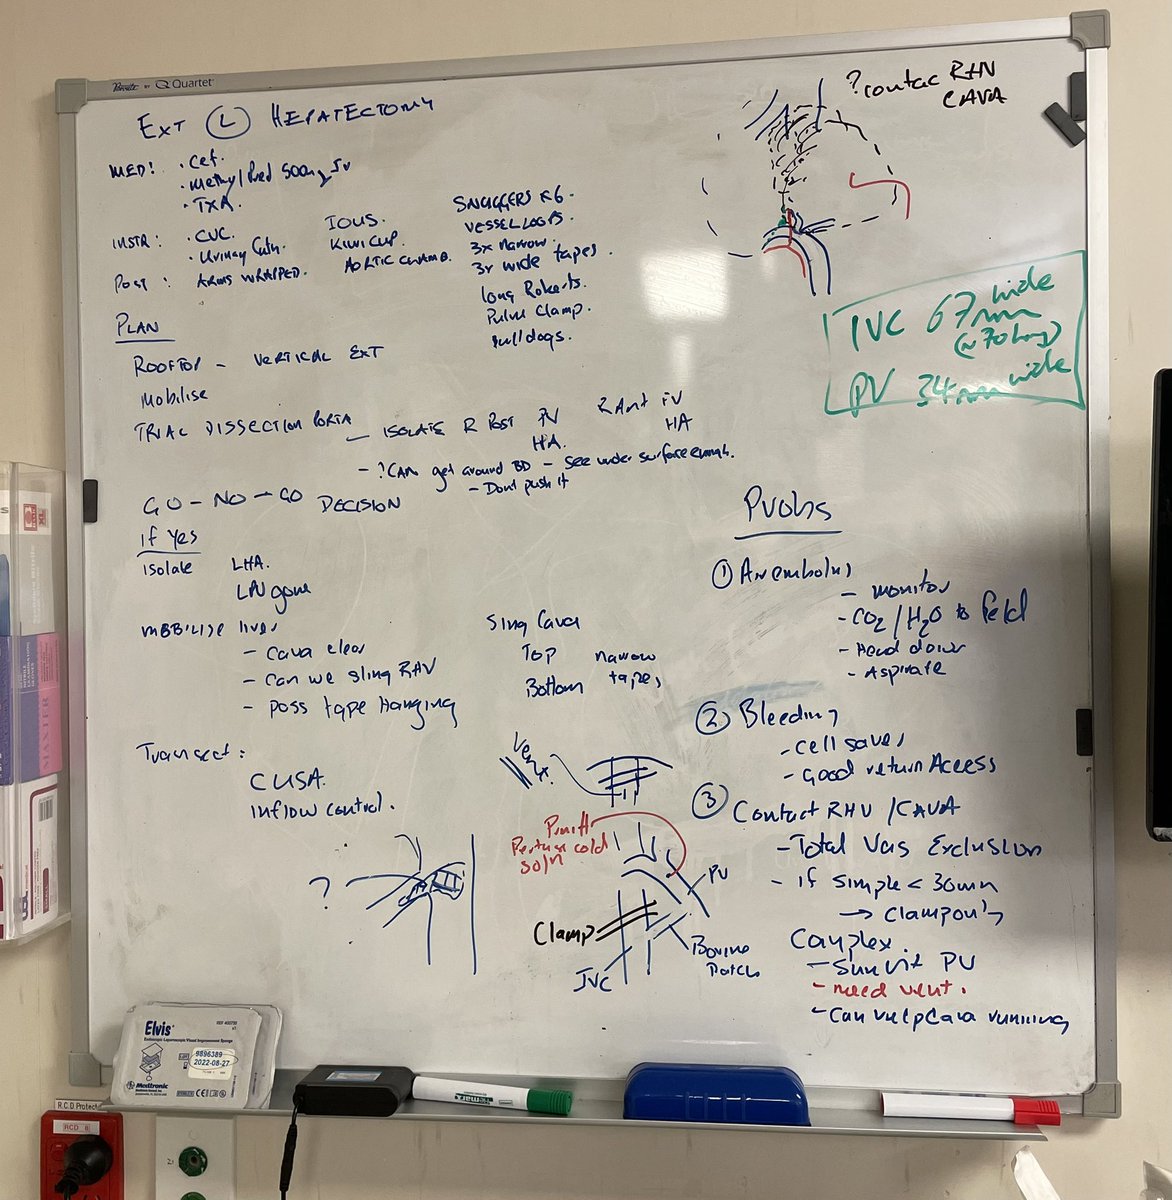 QUARTET
EXT (L) HEPATECTOMY
MED:
· Cef.
· Methyl Pred 500mg IV
· TXA.
INSTR:
· CVC.
· Urinary Cath.
POST:
ARMS WRAPPED.
IOUS.
KIWI CUP.
AORTIC CLAMP.
SNUGGERS
VESSEL LOOPS.
3x narrow.
3x wide tapes.
Long Roberts.
Clamp.
Bulldogs.
?contac RHV
CAVA
IVC 67mm wide
(~70 long)
PV 34mm wide
PLAN
ROOFTOP - VERTICAL EXT
Mobilise
TRIAL DISSECTION PORTA
- ISOLATE R POST PV
HA.
R Ant PV
HA
- ?CAN get around BD - See under surface enough.
- Dont push it
GO - NO - GO DECISION
If Yes
Isolate LHA.
LPV gone
MOBILISE liver
- Cava clear
- Can we sling RHV
- pass tape Hanging
Sling Cava
Top narrow
Bottom tapes
Transect:
CUSA.
Inflow control.
?
Vent.
Perfuse cold
soln
PV
Clamp
IVC
Bovine
Patch
Probs
① Air embolus
- monitor
- CO2/H2O to field
- Head down
- Aspirate
② Bleeding
- Cell saver
- Good return Access
③ Contact RHV / CAVA
- Total Vas Exclusion
- if simple < 30min
→ Clamp on's
Complex
PV
- need vent.
- Can running
Elvis
REF
9896389
2022-08-27
Medtronic
R.C.D Protect
RCD 8
MASTER
XL